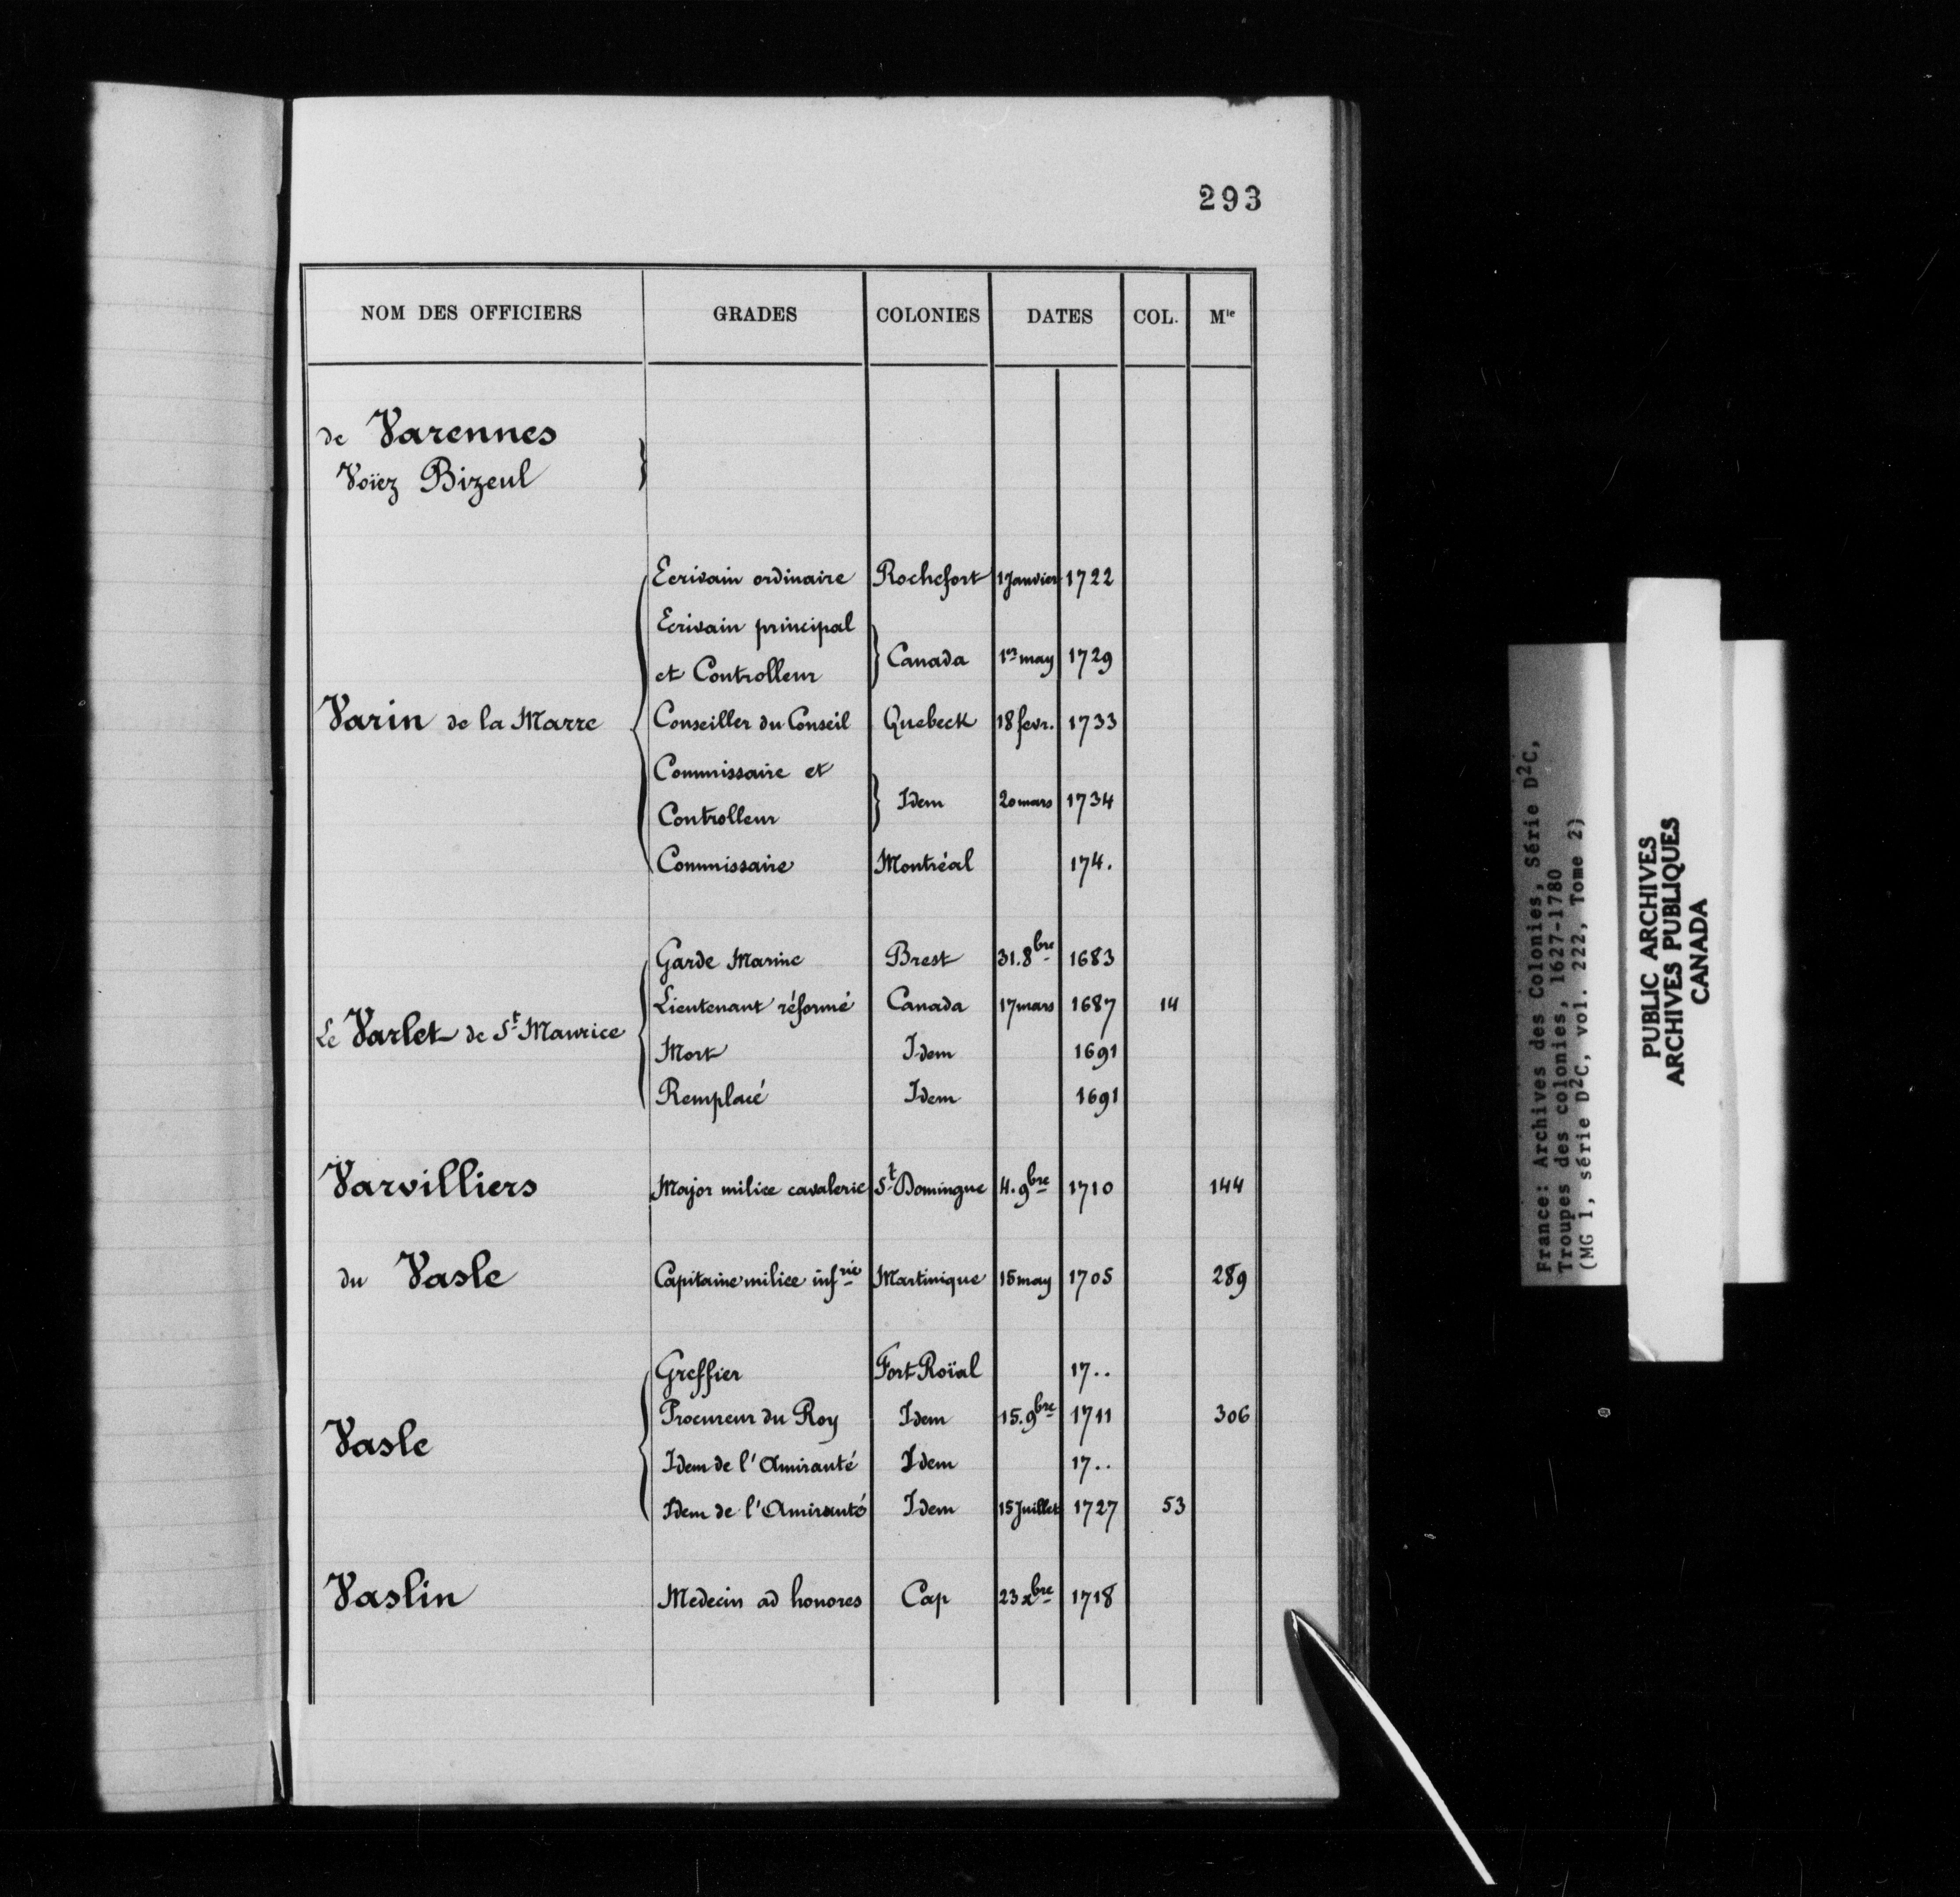 293
NOM DES OFFICIERS GRADES COLONIES DATES COL. Mle
de Varennes
Voïez Bizeul
Ecrivain ordinaire Rochefort 1 Janvier 1722
Ecrivain principal
et Controlleur Canada 1er may 1729
Varin de la Marre Conseiller du Conseil Quebeck 18 fevr. 1733
Commissaire et
Controlleur Idem 20 mars 1734
Commissaire Montréal 174.
Garde Marine Brest 31. 8bre 1683
Lieutenant réformé Canada 17 mars 1687 14
Le Varlet de St Maurice
Mort Idem 1691
Remplacé Idem 1691
Varvilliers Major milice cavalerie St Domingue 4. 9bre 1710 144
du Vasle Capitaine milice infrie Martinique 15 may 1705 289
Greffier Fort Roïal 17..
Procureur du Roy Idem 15. 9bre 1711 306
Vasle
Idem de l'Amirauté Idem 17..
Idem de l'Amirauté Idem 15 Juillet 1727 53
Vaslin Medecin ad honores Cap 23 xbre 1718
France: Archives des Colonies, Série D²C,
Troupes des colonies, 1627-1780
(MG 1, série D²C, vol. 222, Tome 2)
PUBLIC ARCHIVES
ARCHIVES PUBLIQUES
CANADA